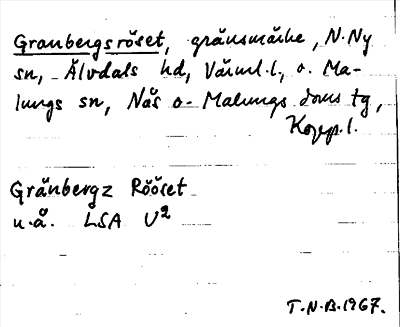 Granbergsröset, gränsmärke, N. Ny
sn, Älvdals hd, Värml. l., o. Ma-
lungs sn, Nås o. Malungs doms tg,
Kopp. l.
Gränbergz Rööset
u.å. LSA U²
T.N.B. 1967.